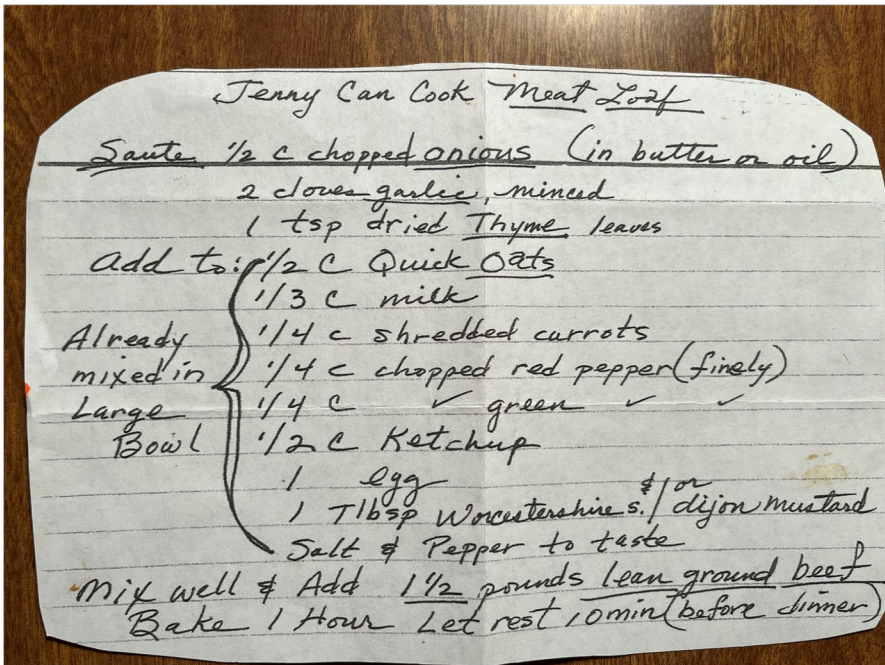 Jenny Can Cook Meat Loaf
Saute 1/2 c chopped onious (in butter or oil)
2 cloves garlic, minced
1 tsp dried Thyme leaves
Add to: 1/2 C Quick Oats
1/3 C milk
Already 1/4 c shredded carrots
mixed in 1/4 c chopped red pepper (finely)
Large 1/4 C ✓ green ✓ ✓
Bowl 1/2 C Ketchup
1 egg
1 Tlbsp Worcestershire s. &/or dijon mustard
Salt & Pepper to taste
Mix well & Add 1 1/2 pounds lean ground beef
Bake 1 Hour Let rest 10 min (before dinner)